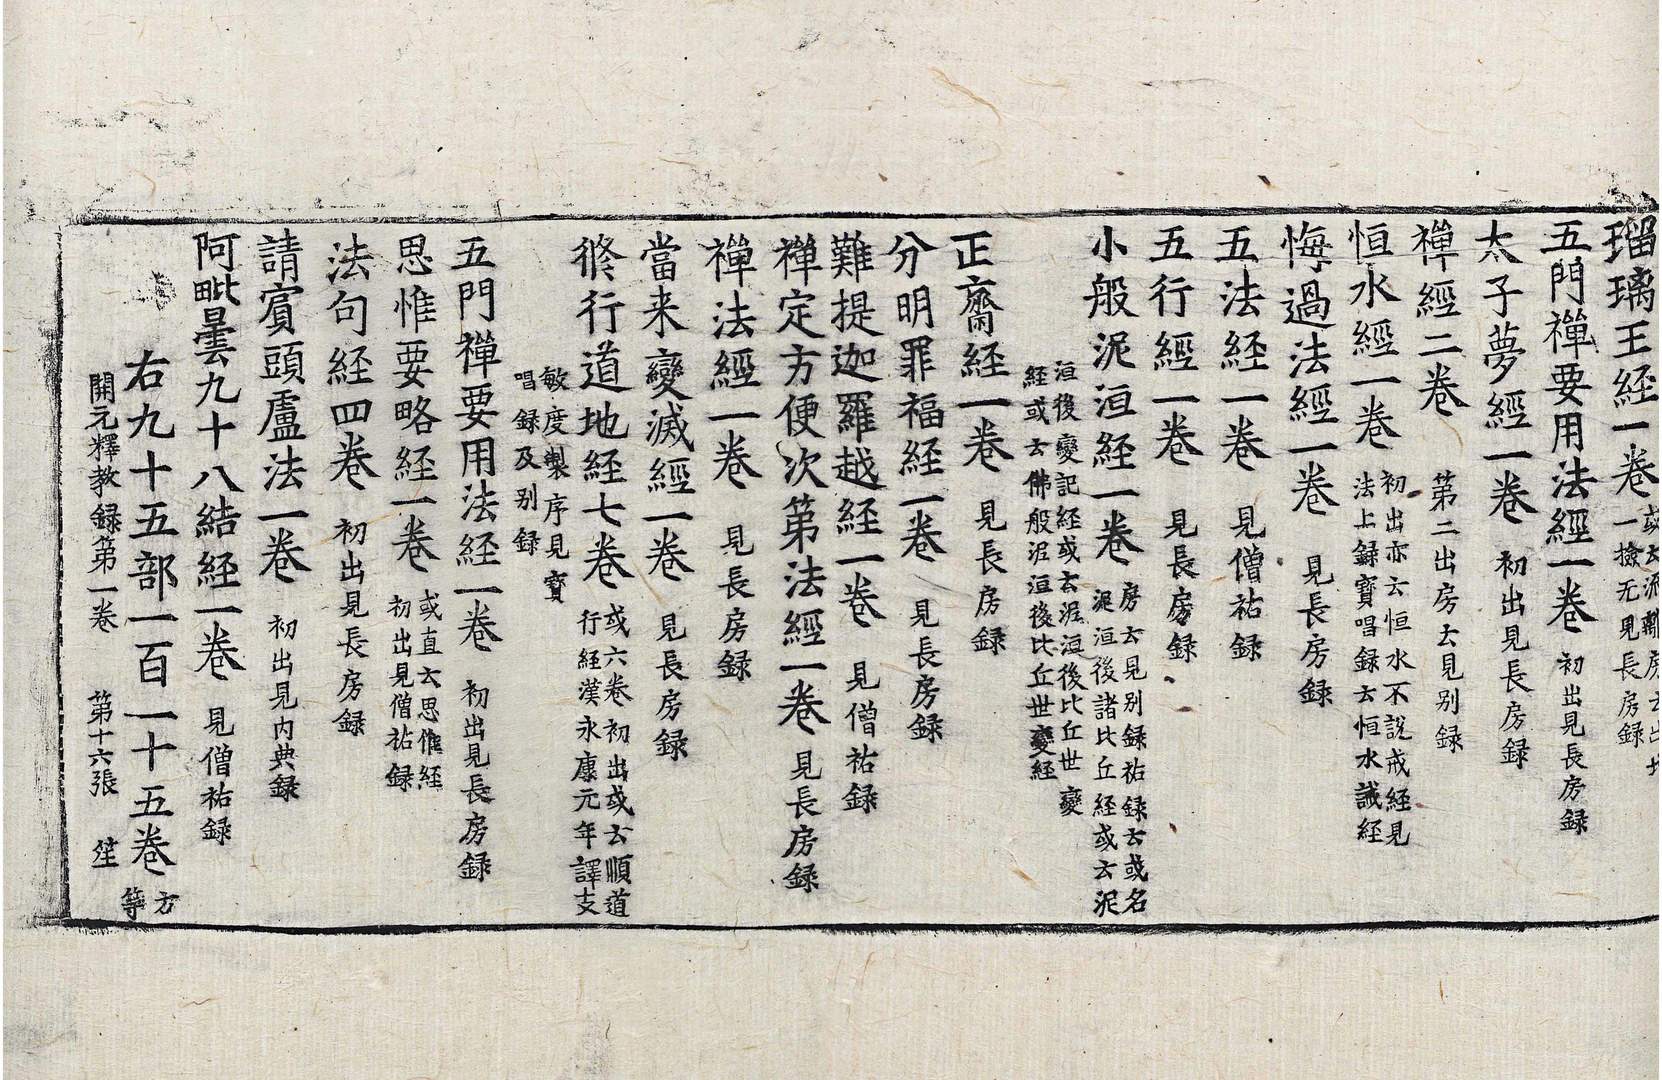 瑠璃王経一卷 或云流離房云出 一撿无見長房録
五門禪要用法經一卷 初出見長房録
太子夢經一卷 初出見長房録
禪經二卷 第二出房云見別録
恒水經一卷 初出亦云恒水不説戒経見 法上録寶唱録云恒水誡経
悔過法經一卷 見長房録
五法経一卷 見僧祐録
五行經一卷 見長房録
小般泥洹経一卷 房云見別録祐録云或名 泥洹後諸比丘経或云泥
洹後變記経或云泥洹後比丘世變 経或云佛般泥洹後比丘世變経
正齋経一卷 見長房録
分明罪福経一卷 見長房録
難提迦羅越経一卷 見僧祐録
禪定方便次第法經一卷 見長房録
禪法經一卷 見長房録
當来變滅經一卷 見長房録
脩行道地経七卷 或六卷初出或云順道 行経漢永康元年譯支
敏度製序見寶 唱録及別録
五門禪要用法経一卷 初出見長房録
思惟要略経一卷 或直云思惟経 初出見僧祐録
法句経四卷 初出見長房録
請賓頭盧法一卷 初出見内典録
阿毗曇九十八結経一卷 見僧祐録
右九十五部一百一十五卷 方 等
開元釋教録第一卷 第十六張 笙